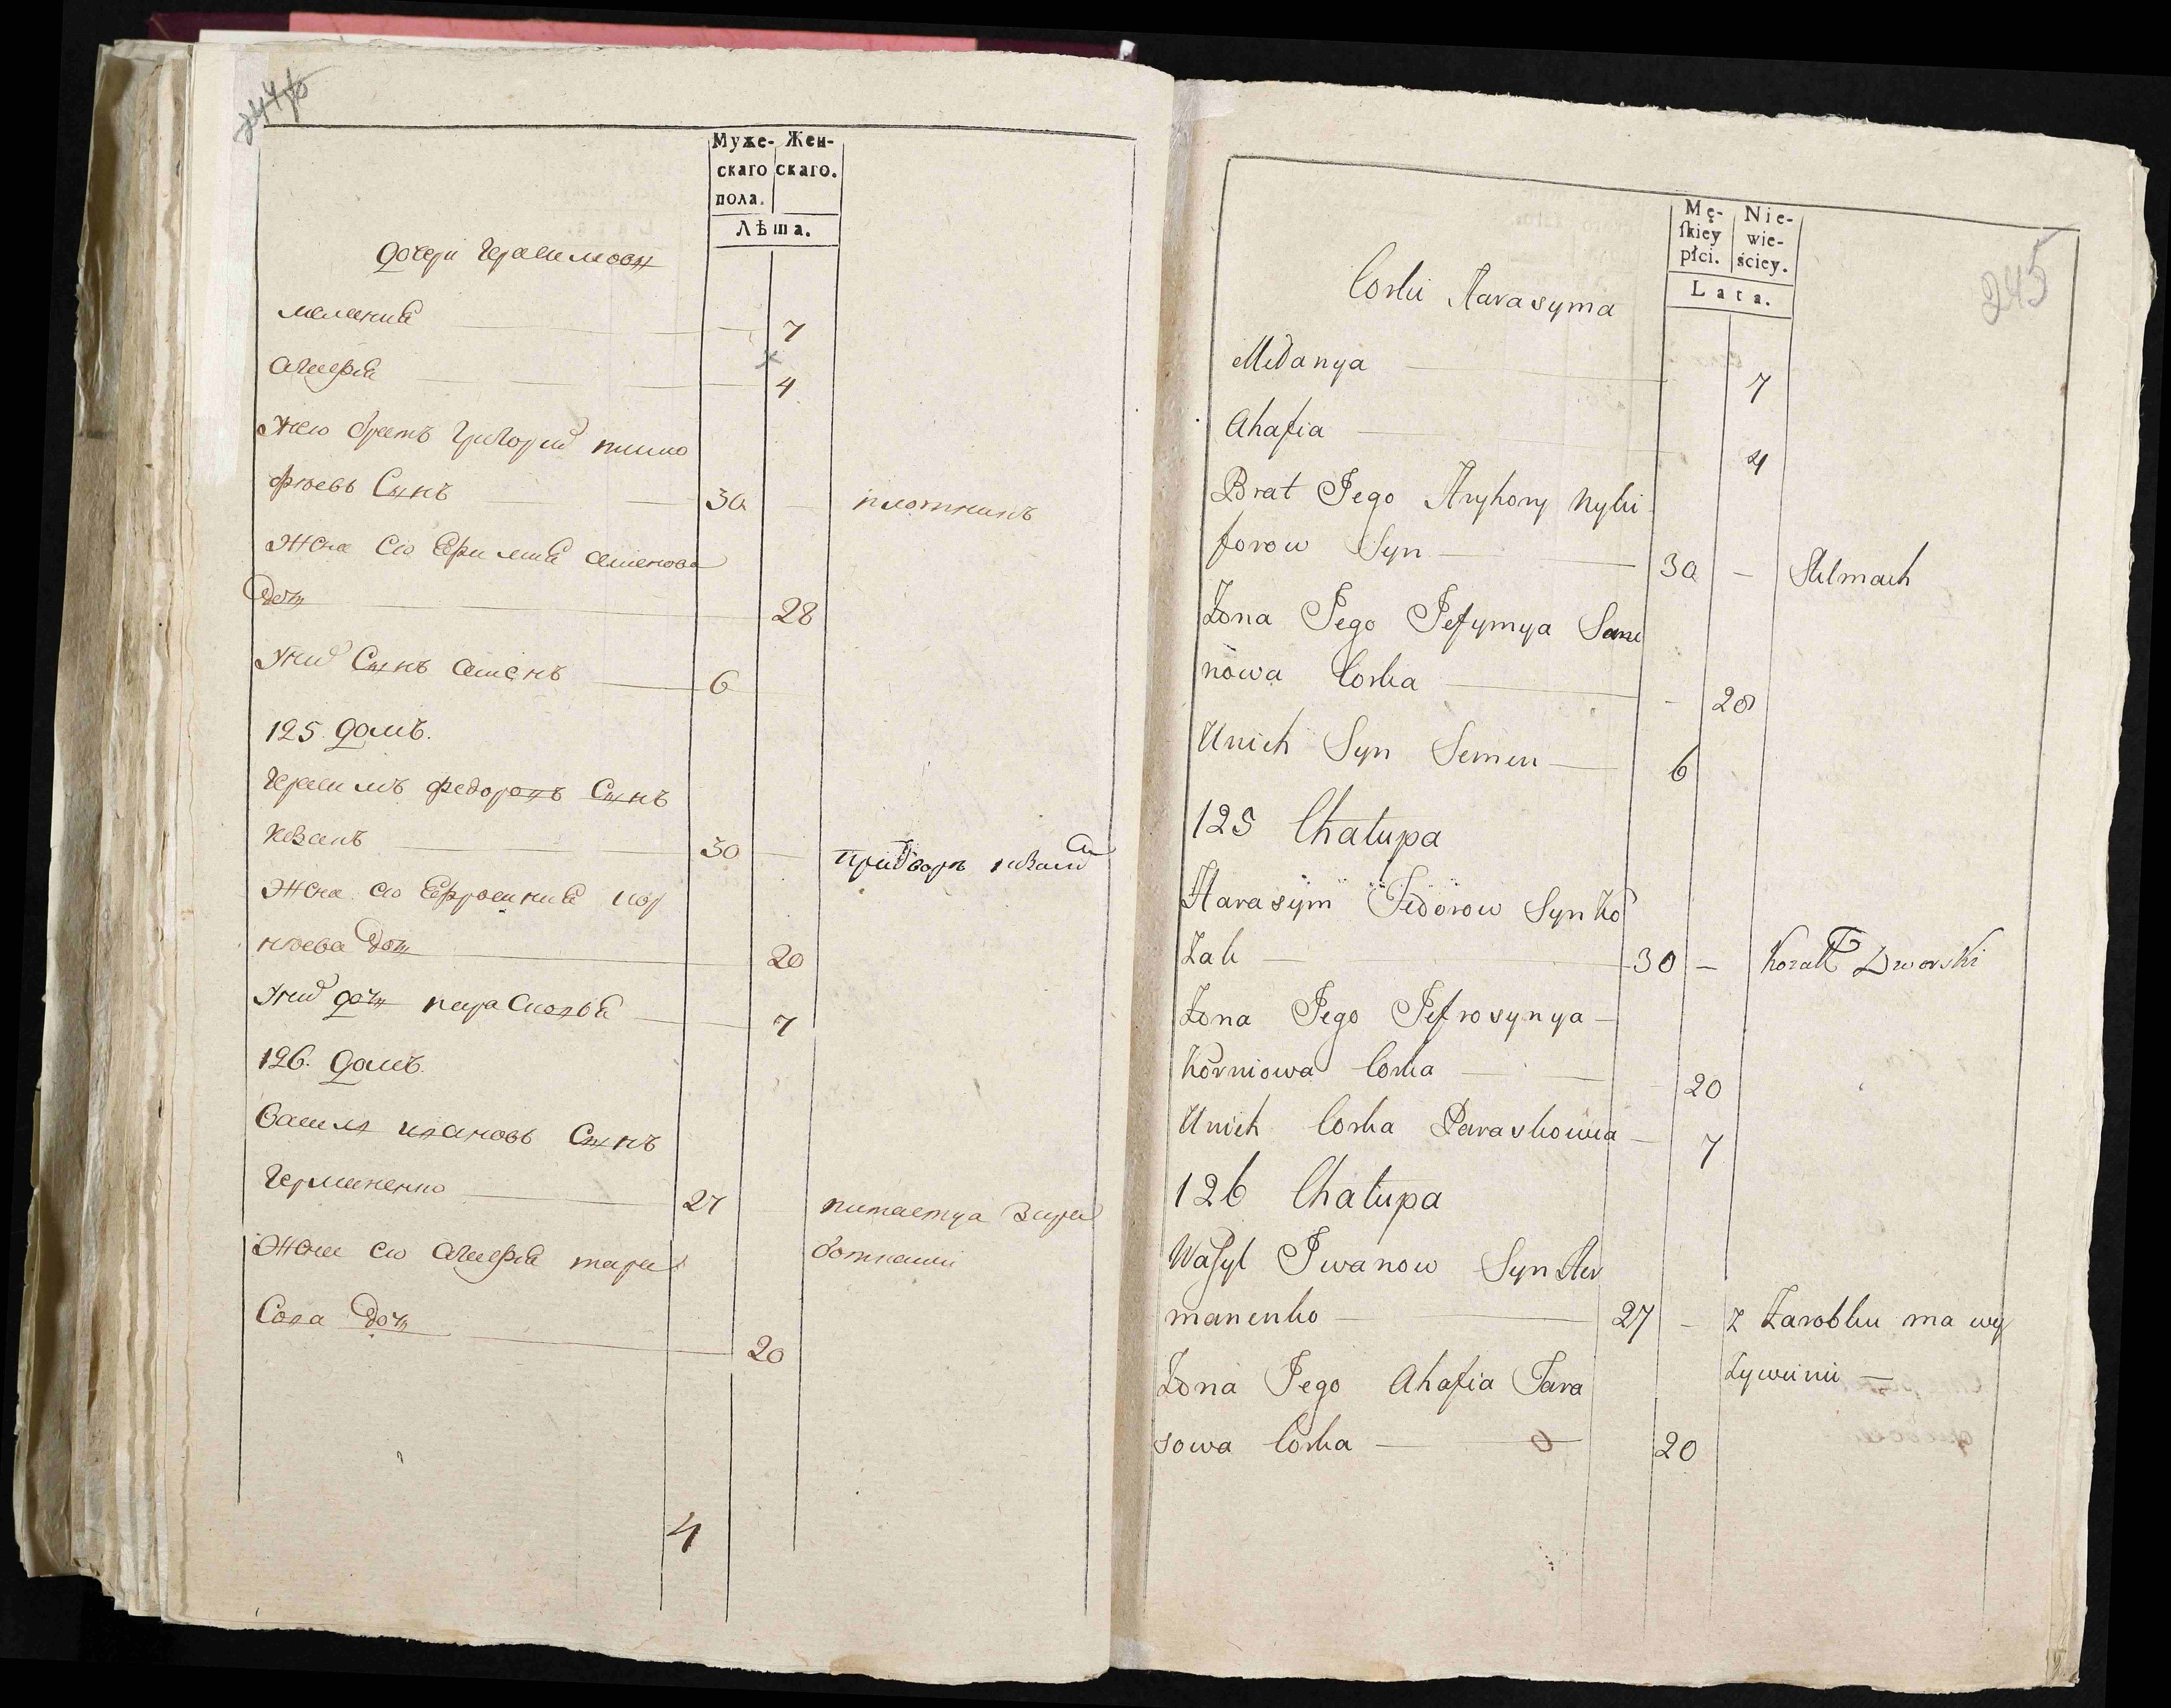 Муже- Жен-
скаго скаго.
пола.
Лѣта.
Дочери Герасимовы
мелания 7
Агафия 4
Его братъ Григорий ники
форовъ Сынъ 30 — плотникъ
Жена Его Ефимия семенова
Дочь 28
У них Сынъ семенъ 6
125. Домъ.
Герасимъ Федоровъ Сынъ
Козакъ 30
Жена Его Ефросиния кор
ниева Дочь 20
У них Дочь парасковья 7
126. Домъ.
Василь ивановъ Сынъ
Германенко 27 питается Зара
ботками
Жена Его Агафия тара
Сова Дочь 20
4
245
Mę- Nie-
skiey wie-
płci. ściey.
Lata.
Corki Harasyma
Melanya 7
Ahafia 4
Brat Jego Hryhory Nyki
forow Syn 30 — Stelmach
Żona Jego Jefymya Seme
nowa Corka - 28
Unich Syn Semen 6
125 Chałupa
Harasym Fedorow Syn Ko
zak 30 — Kozak Dworski
Żona Jego Jefrosynya
Korniowa Corka 20
Unich Corka Paraskowia 7
126 Chałupa
Wasyl Iwanow Syn Her
manenko 27 — z Zarobku ma wy
żywieni
Żona Jego Ahafia Tara
sowa Corka 20